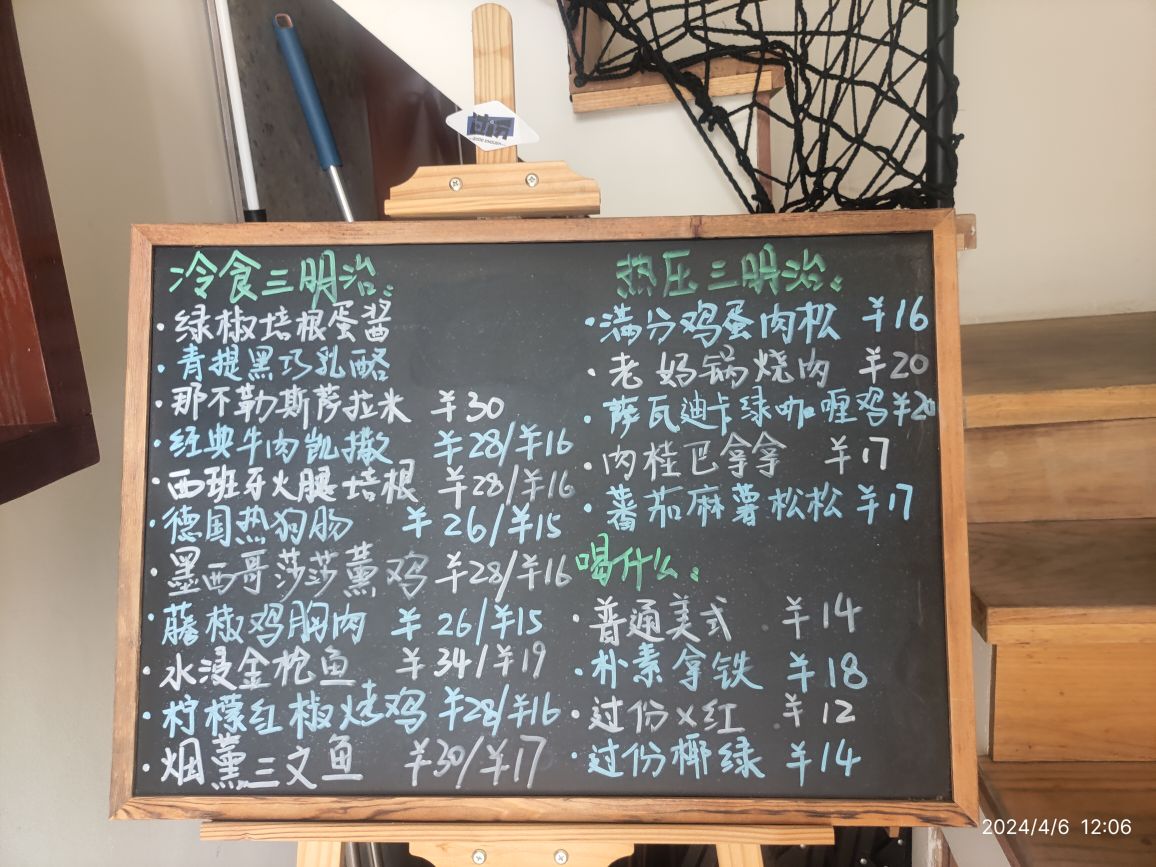 过份
冷食三明治:
·绿椒培根蛋酱
·青提黑巧乳酪
·那不勒斯萨拉米 ¥30
·经典牛肉凯撒 ¥28/¥16
·西班牙火腿培根 ¥28/¥16
·德国热狗肠 ¥26/¥15
·墨西哥莎莎薰鸡 ¥28/¥16
·藤椒鸡胸肉 ¥26/¥15
·水浸金枪鱼 ¥34/¥19
·柠檬红椒烤鸡 ¥28/¥16
·烟薰三文鱼 ¥30/¥17
热压三明治:
·满分鸡蛋肉松 ¥16
·老妈锅烧肉 ¥20
·萨瓦迪卡绿咖喱鸡¥20
·肉桂巴拿拿 ¥17
·蕃茄麻薯松松 ¥17
喝什么:
·普通美式 ¥14
·朴素拿铁 ¥18
·过份x红 ¥12
·过份椰绿 ¥14
2024/4/6 12:06